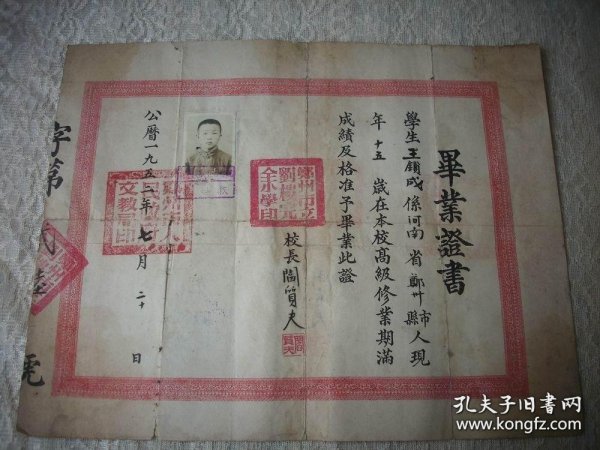 畢業證書
學生王鎖成係河南省鄭州市縣人現
年十五歲在本校高級修業期滿
成績及格准予畢業此證
校長閻質夫
鄭州市立
劉樓完
全小學印
公曆一九五二年七月二十日
字第
號
孔夫子旧书网
www.kongfz.com